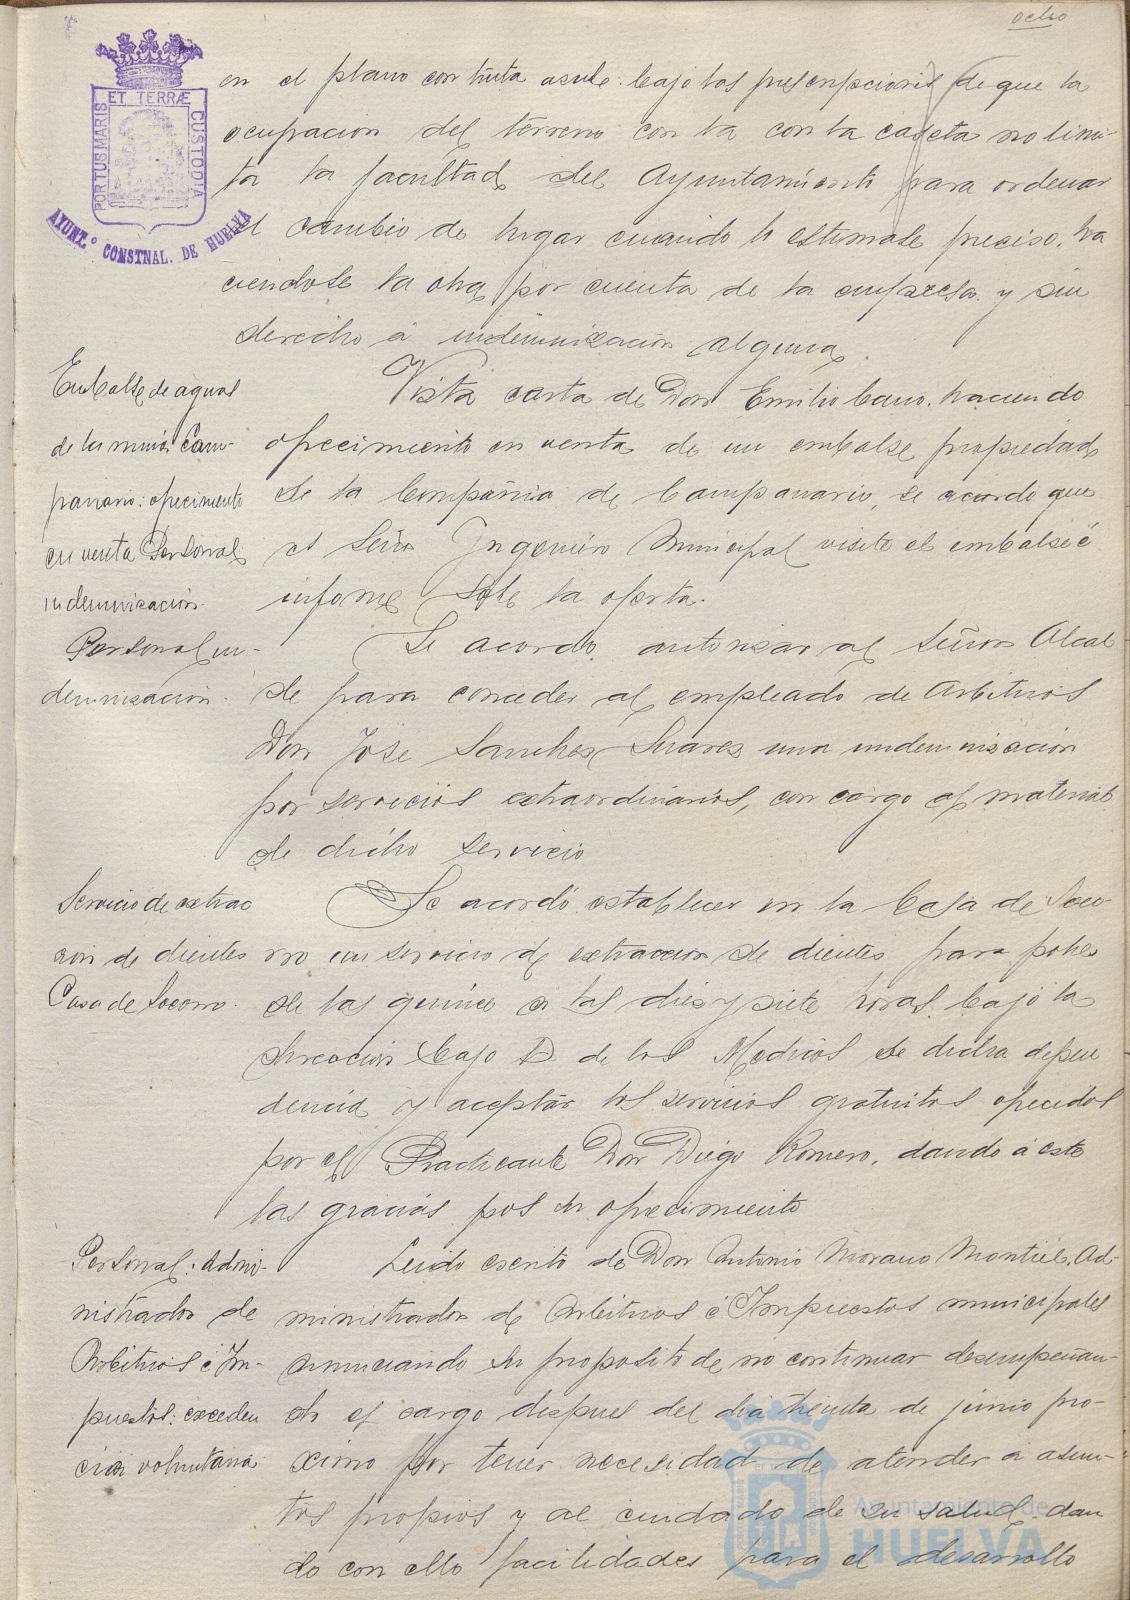 ocho
PORTUS MARIS ET TERRÆ CUSTODIA
AYUNT.º CONSTNAL. DE HUELVA
en el plano con tinta asule bajo las prescripciones de que la
ocupacion del terreno con la con la caseta no limi-
ta la facultad del Ayuntamiento para ordenar
el cambio de lugar cuando lo estimase preciso, ha
ciendose la obra por cuenta de la empresa y sin
derecho á indemnización alguna.
Embalse de aguas
de las minas Cam-
panario: ofrecimiento
en venta Personal
indemnización.
Vista carta de Don Emilio Cano, haciendo
ofrecimiento en venta de un embalse propiedad
de la Compañia de Campanario, se acordó que
el Señor Ingeniero Municipal visite el embalse é
informe sobre la oferta.
Personal in-
demnización.
Se acordó autorizar al Señor Alcal-
de para conceder al empleado de Arbitrios
Don José Sanchez Suarez una indemnización
por servicios extraordinarios, con cargo al material
de dicho servicio
Servicio de extrac
cion de dientes
Casa de Socorro.
Se acordó establecer en la Casa de Soco-
rro un servicio de extraccion de dientes para pobres
de las quince á las diez y siete horas, bajo la
direccion bajo D. de los Medicos de dicha depen
dencia y aceptar los servicios gratuitos ofrecidos
por el Practicante Don Diego Romero, dando á este
las gracias por su ofrecimiento
Personal: Admi-
nistrador de
Arbitrios é Im-
puestos: exceden
cia voluntaria
Leido escrito de Don Antonio Morano Montiel, Ad-
ministrador de Arbitrios é Impuestos municipales
anunciando su proposito de no continuar desempeñan-
do el cargo despues del dia treinta de junio pro-
ximo por tener necesidad de atender á asun-
tos propios y al cuidado de su salud, dan
do con ello facilidades para el desarrollo
Ayuntamiento de
HUELVA